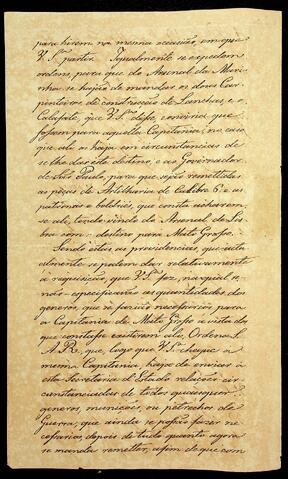 para hirem na mesma occasião, em que
V. S.ª partir. Igualmente se expedem
ordens, para que do Arsenal da Mari-
nha se hajão de mandar os dous Car-
pinteiros de construcção de Lanchas, e o
Calafate, que V. S.ª disse, conviria que
fossem para aquella Capitania; no caso
que ali os haja em circunstancias de
se lhe dar este destino, e ao Governador
de São Paulo, para que sejão remettidas
as peças de Artilharia de Calibre 6 e as
patronas e boldriés, que consta acharem-
se ali, tendo vindo do Arsenal de Lis-
boa com destino para Mato Grosso.
Sendo estas as providencias, que actu-
almente se podem dar relativamente
á requisição, que V. S.ª faz, na qual se
não especificarão as quantidades dos
generos, que se farião necessarios para
a Capitania de Mato Grosso á vista do
que constasse existirem ali; Ordena S.
A. R. que, logo que V. S.ª chegue a
mesma Capitania, haja de enviar a
esta Secretaria d'Estado relações cir-
cunstanciadas de todos quaesquer
generos, munições, ou petrechos de
Guerra, que ainda se possão fazer ne-
cessarios, depois de tudo quanto agora
se manda remetter, afim de que com